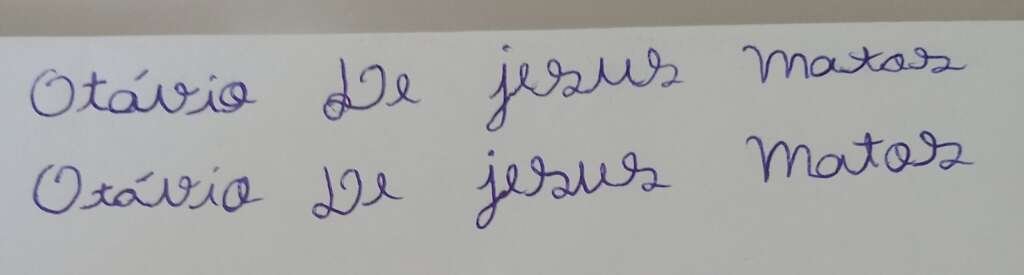 Otávio De jesus Matos
Otávio De jesus Matos